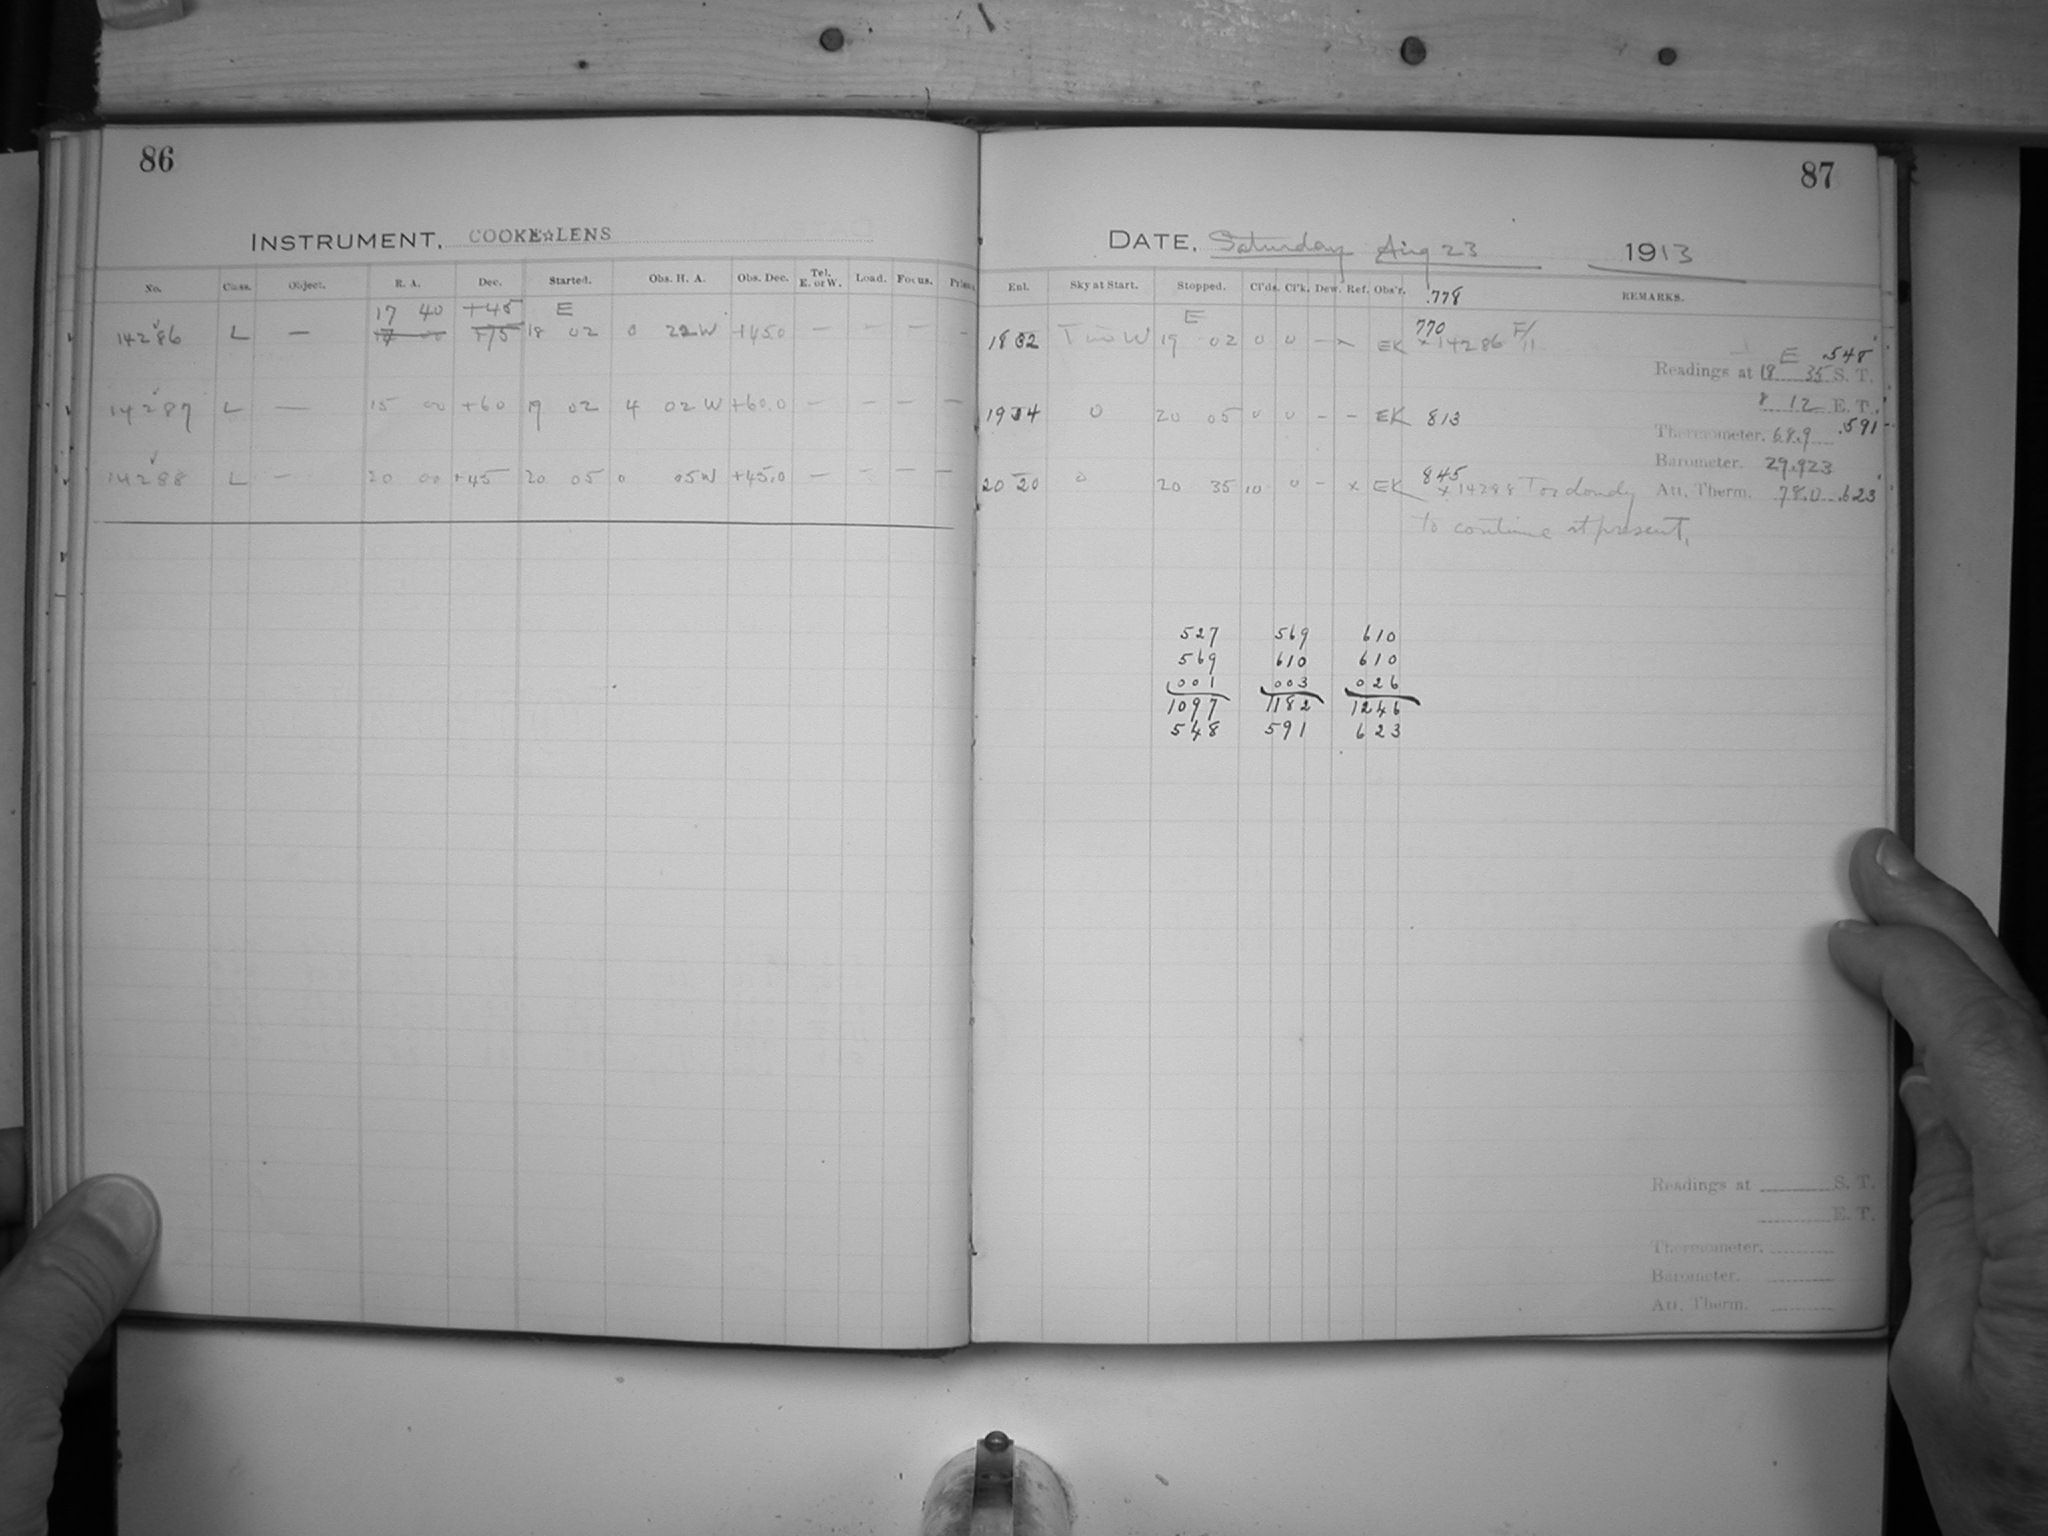 86
INSTRUMENT. COOKE☆LENS
No. Class. Object. R. A. Dec. Started. Obs. H. A. Obs. Dec. Tel. E. or W. Load. Focus. Prism
17 40 +45 E
14286 L — +75 18 02 0 22W +45.0 — — — —
14287 L — 15 00 +60 19 02 4 02W +60.0 — — — —
14288 L — 20 00 +45 20 05 0 05W +45.0 — — — —
87
DATE. Saturday Aug 23 1913
Ent. Sky at Start. Stopped. Cl'ds. Cl'k. Dew. Ref. Obs'r. .778 REMARKS.
E 770
18 32 Two W 19 02 0 0 — x EK x 14286 F/11
E .548
Readings at 18 35 S. T.
8 12 E. T.
19 34 0 20 05 0 0 — — EK 813
.591
Thermometer. 68.9
Barometer. 29.923
20 20 0 20 35 10 0 — x EK 845
x 14288 Too cloudy
to continue at present.
Att. Therm. 78.0 .623
527 569 610
569 610 610
001 003 026
1097 1182 1246
548 591 623
Readings at S. T.
E. T.
Thermometer.
Barometer.
Att. Therm.